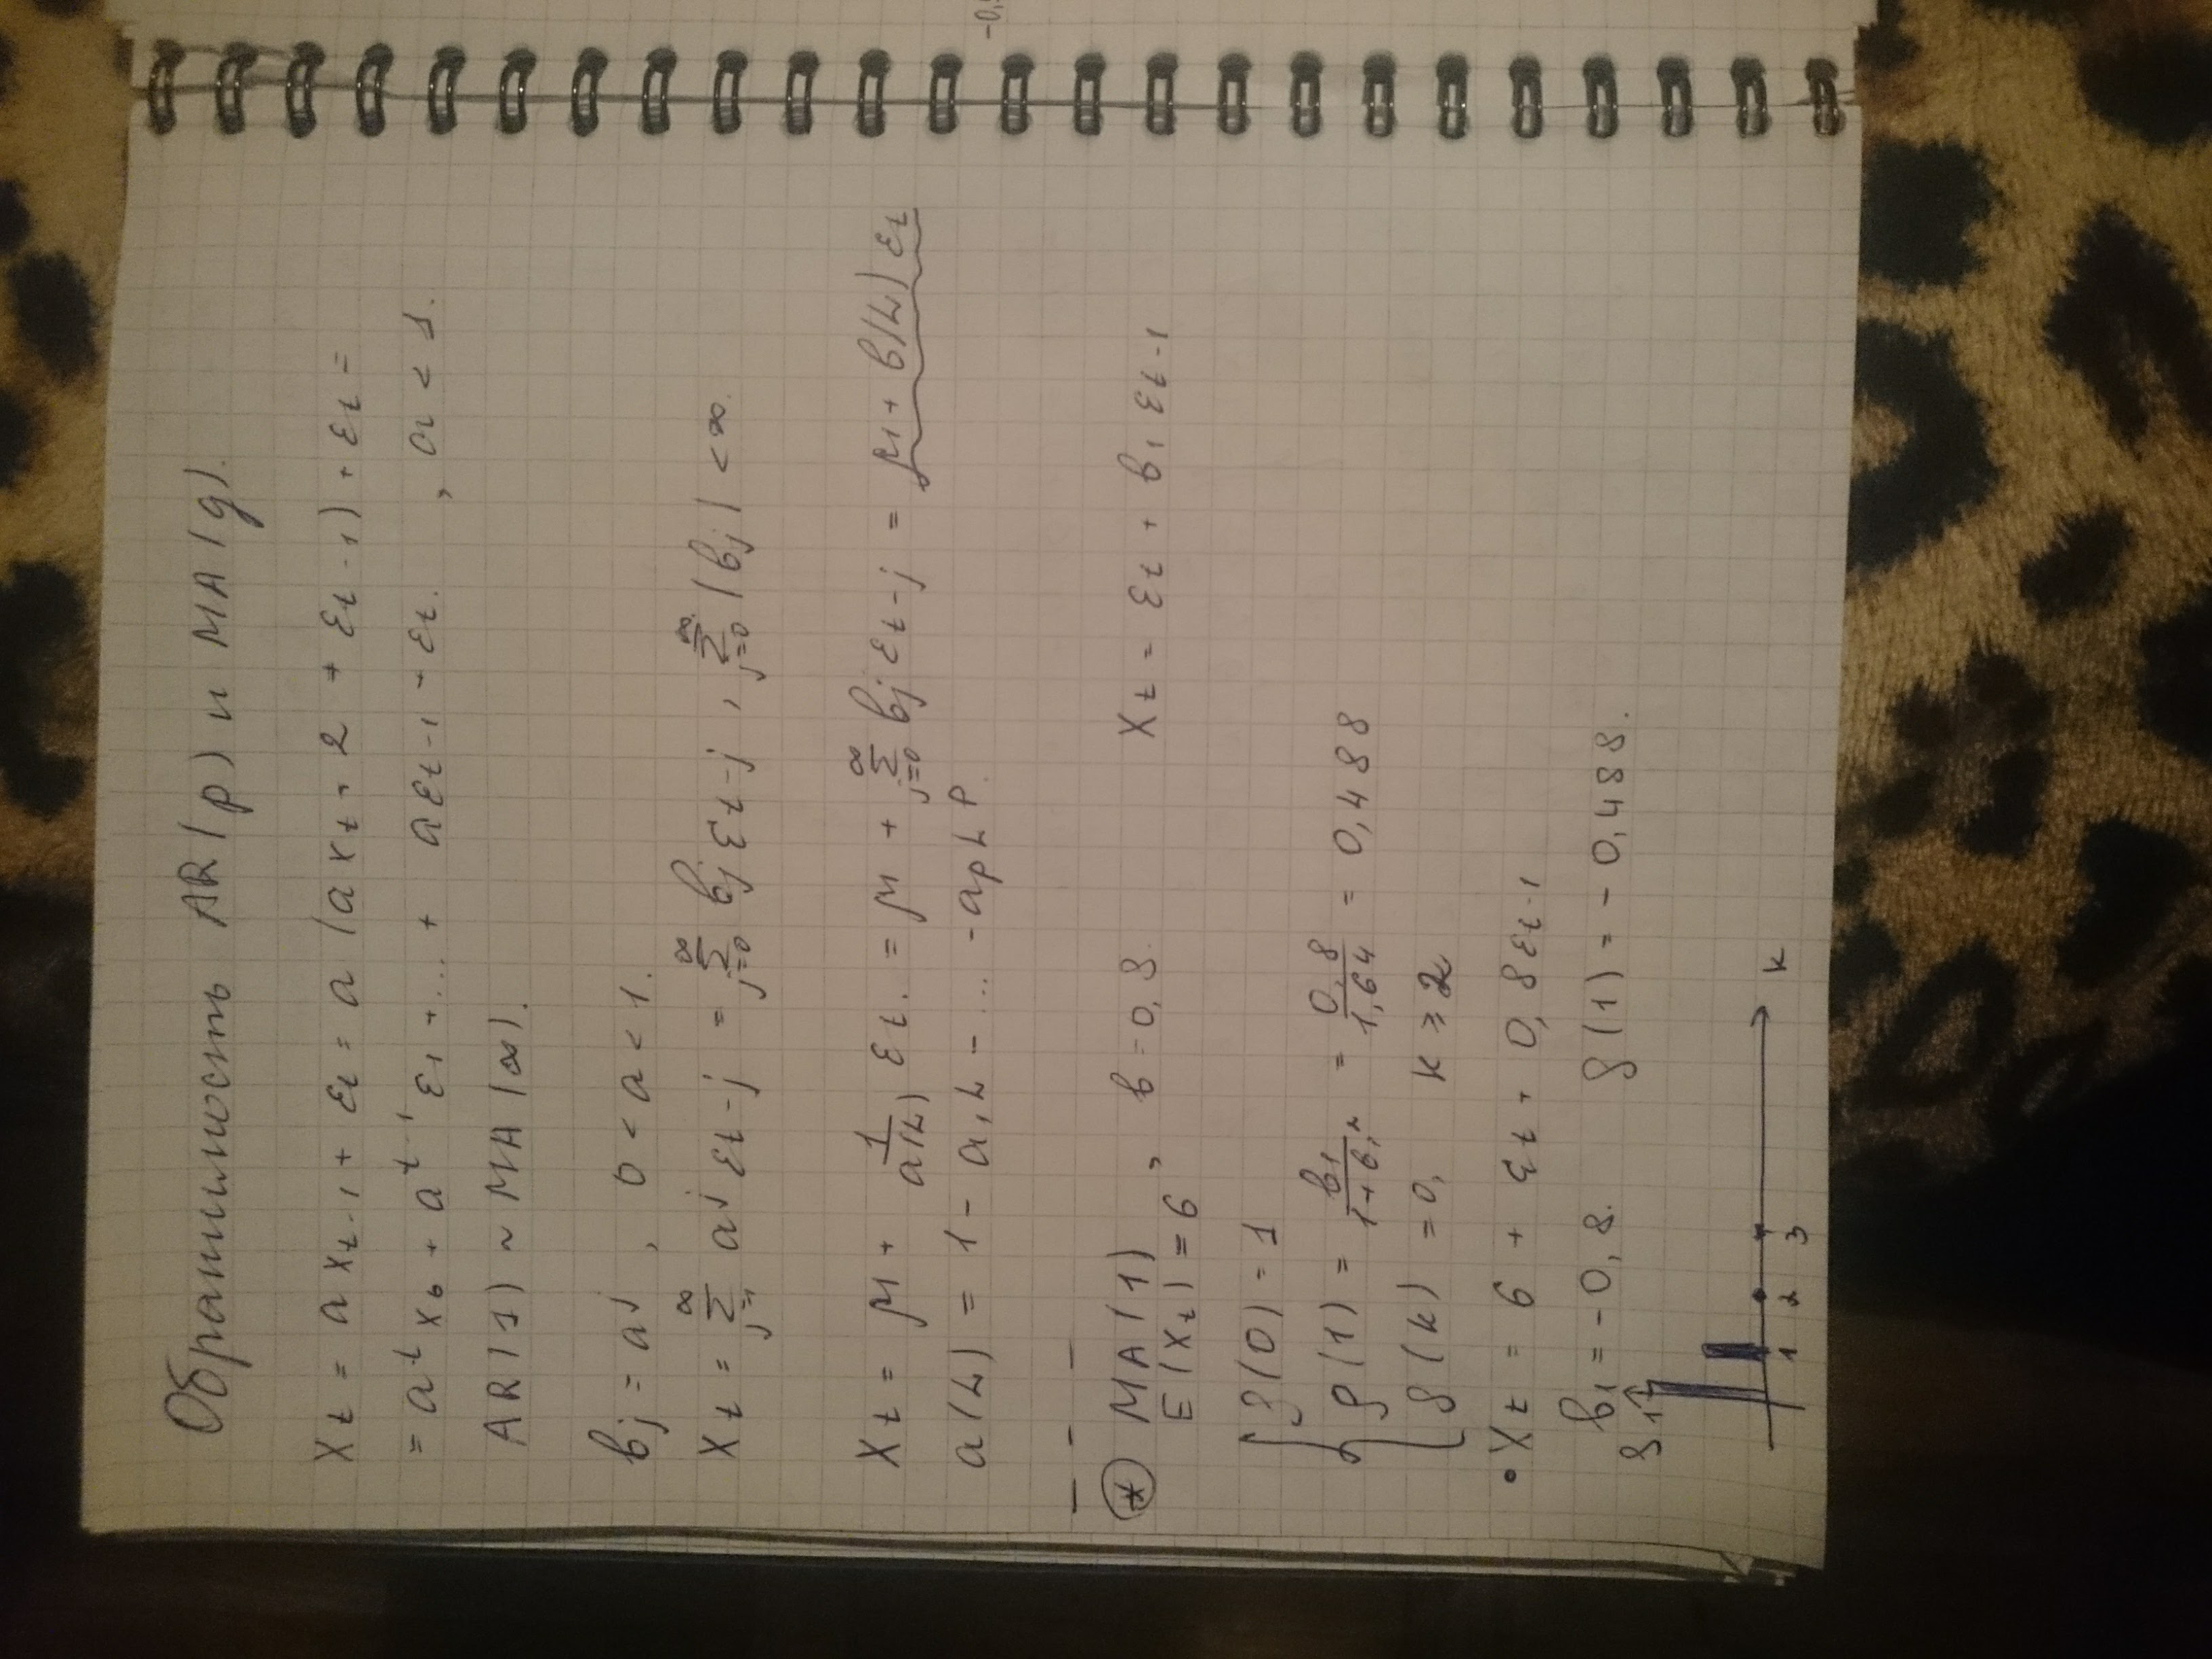 Обратимость AR(p) и MA(q).
X_t = a x_{t-1} + ε_t = a (a x_{t-2} + ε_{t-1}) + ε_t =
= a^t x_0 + a^{t-1} ε_1 + ... + a ε_{t-1} + ε_t. , a < 1.
AR(1) ~ MA(∞).
b_j = a^j , 0 < a < 1.
X_t = ∑_{j=1}^∞ a^j ε_{t-j} = ∑_{j=0}^∞ b_j ε_{t-j} , ∑_{j=0}^∞ |b_j| < ∞.
X_t = μ + 1/a(L) ε_t. = μ + ∑_{j=0}^∞ b_j ε_{t-j} = μ + b(L) ε_t
a(L) = 1 - a_1 L - ... - a_p L^p.
* MA(1) , b = 0,8. X_t = ε_t + b_1 ε_{t-1}
E(X_t) = 6
ρ(0) = 1
ρ(1) = b_1/(1+b_1^2) = 0,8/1,64 = 0,488
ρ(k) = 0, k ≥ 2
• X_t = 6 + ε_t + 0,8 ε_{t-1}
b_1 = -0,8. ρ(1) = -0,488.
1 2 3 k
-0,